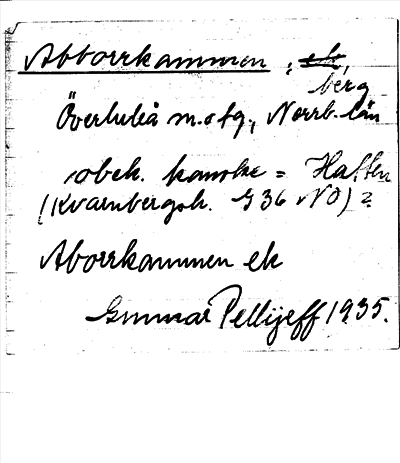 Abborrkammen, ek
berg
Överluleå m. o fg., Norrb. län
obek. kanske = Hatten
(Kvarnbergsh. G 36 NO) ?
Aborrkammen ek
Gunnar Pellijeff 1935.